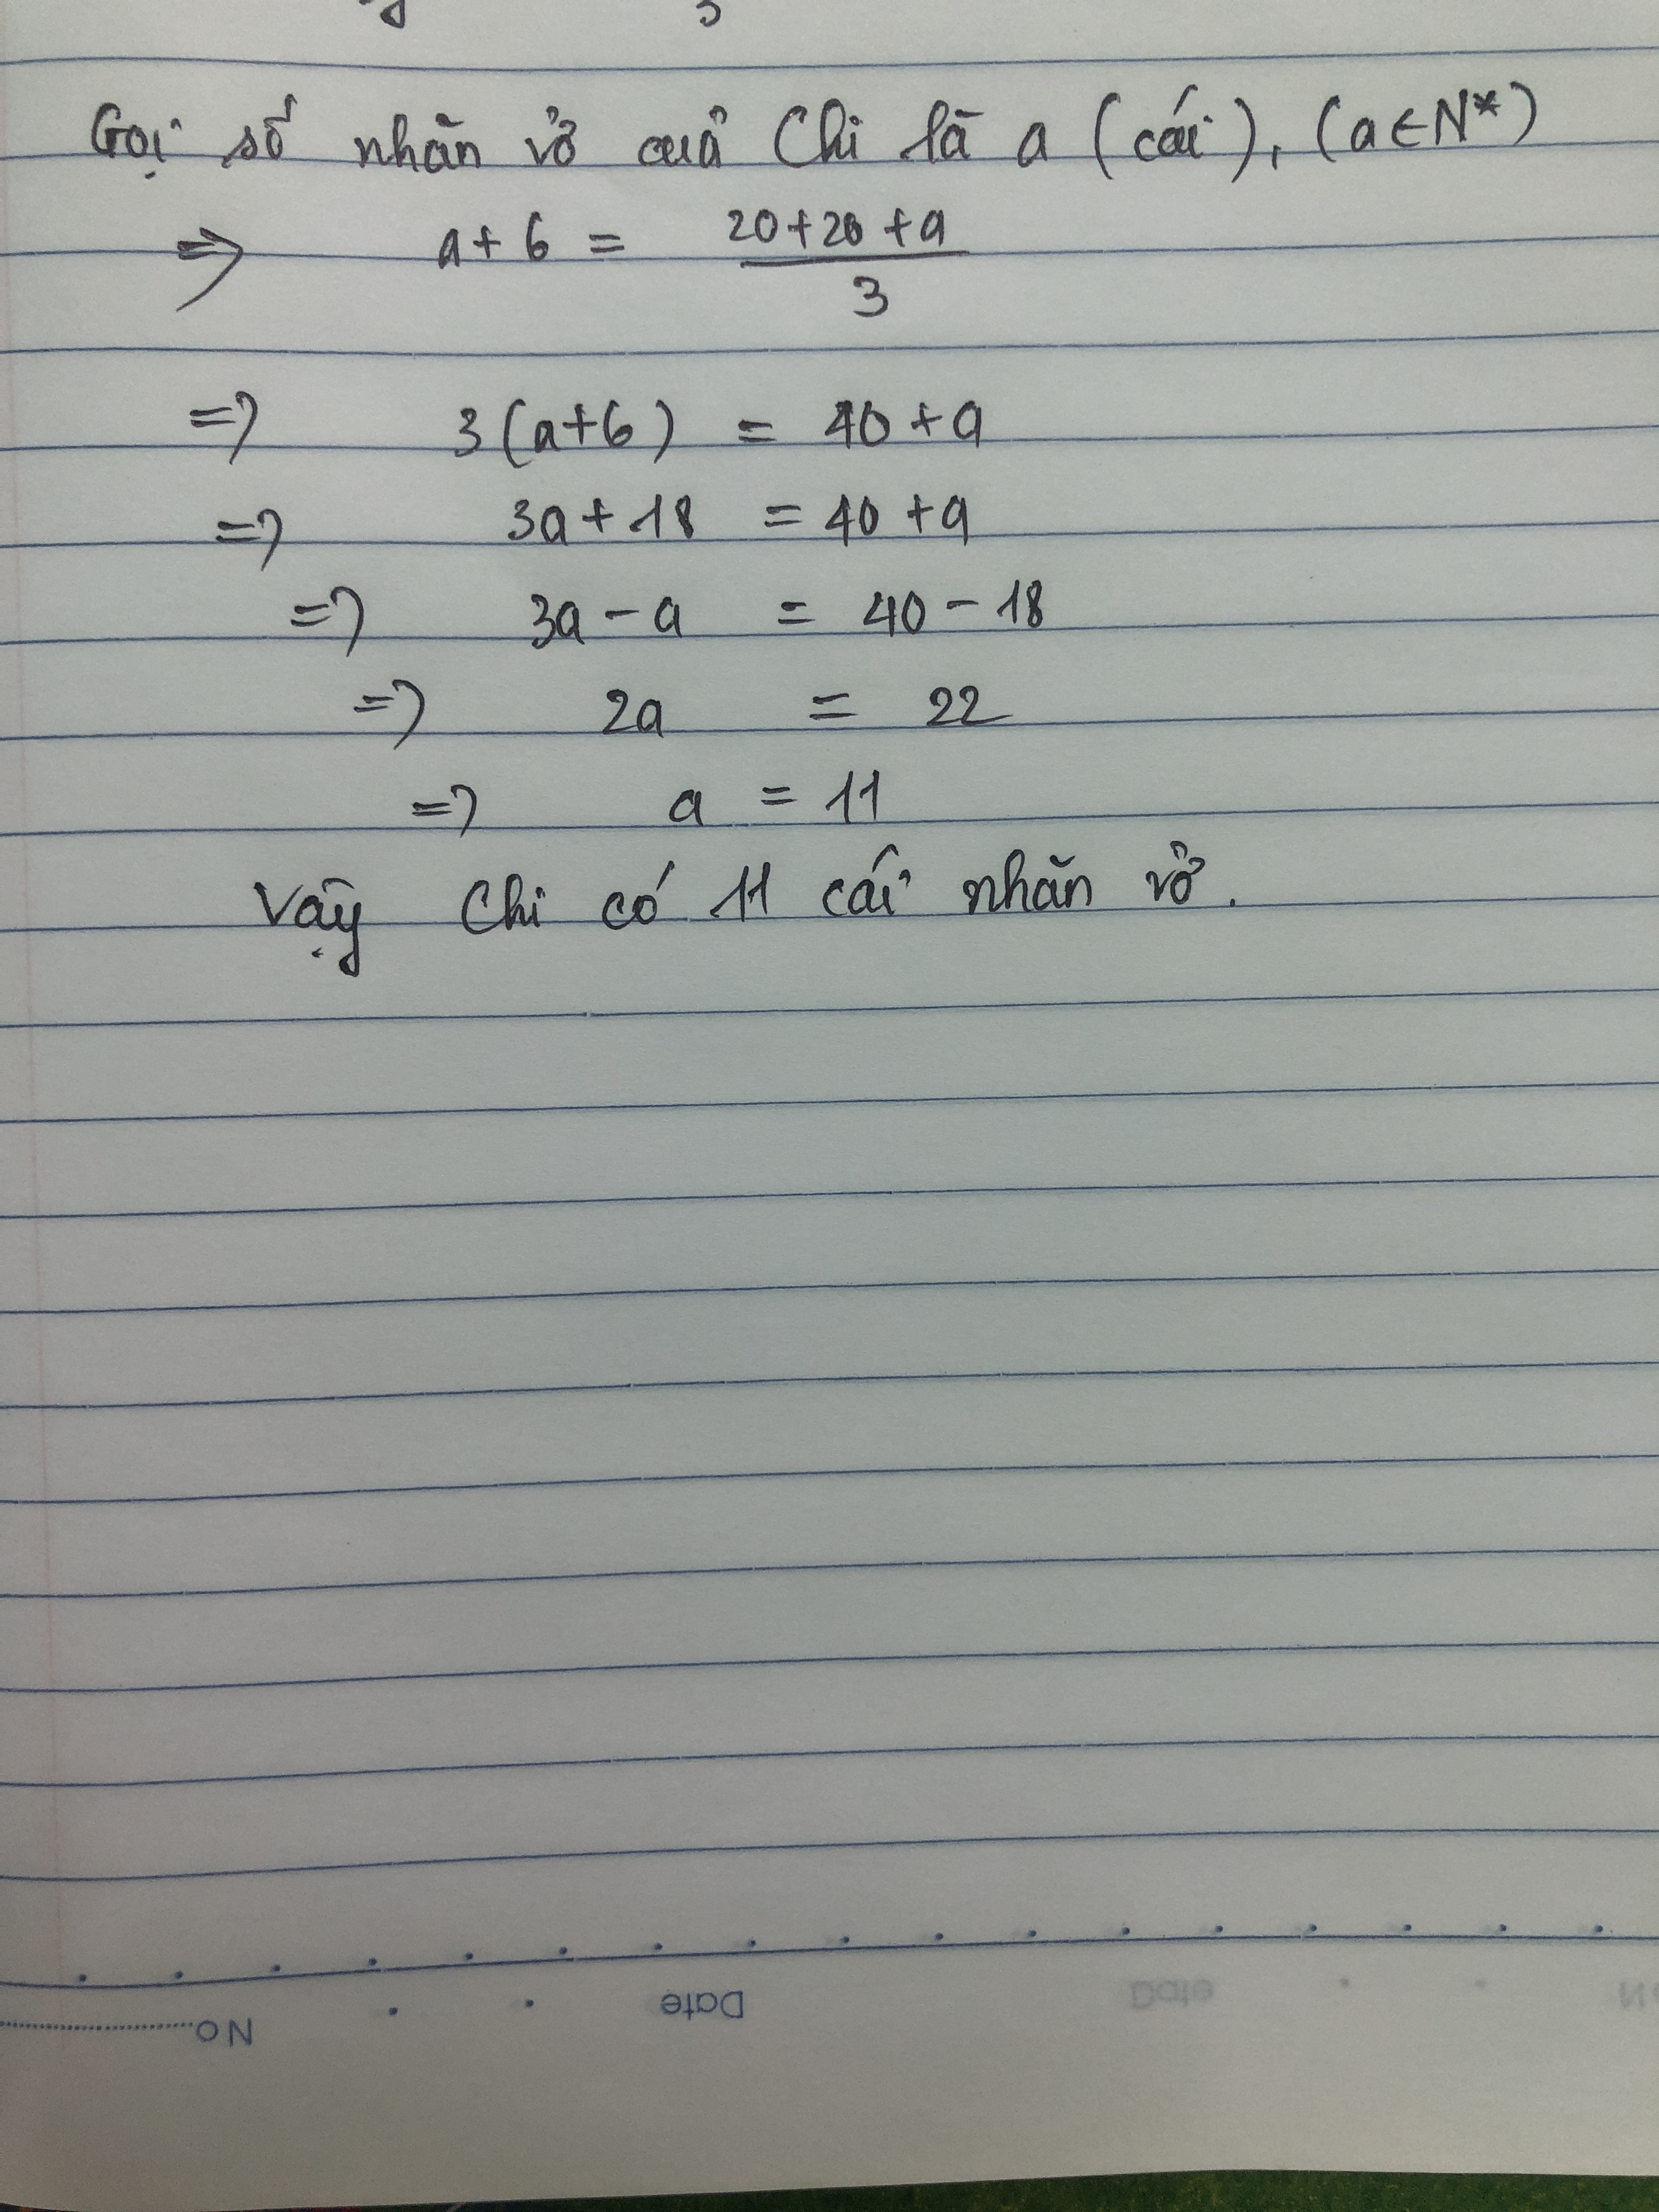 Gọi số nhãn vở của Chi là a (cái), (a∈N*)
=> a + 6 = (20+20+a)/3
=> 3(a+6) = 40+a
=> 3a+18 = 40+a
=> 3a - a = 40 - 18
=> 2a = 22
=> a = 11
Vậy Chi có 11 cái nhãn vở.
Date
No
Date